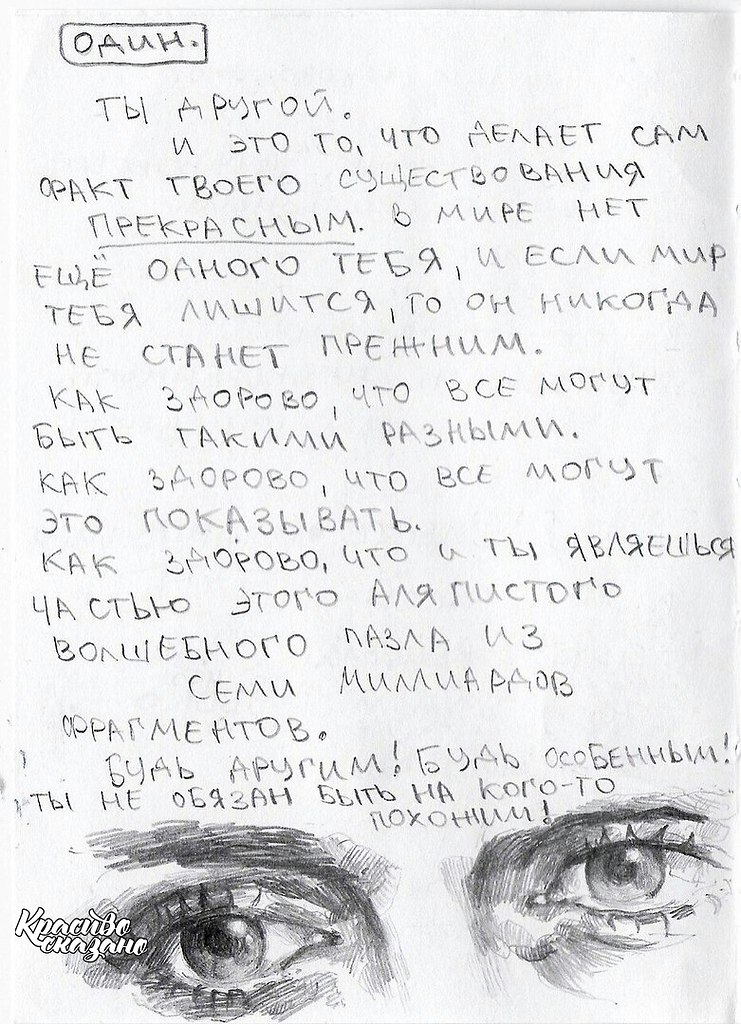 ОДИН.
ТЫ ДРУГОЙ.
И ЭТО ТО, ЧТО ДЕЛАЕТ САМ
ФАКТ ТВОЕГО СУЩЕСТВОВАНИЯ
ПРЕКРАСНЫМ. В МИРЕ НЕТ
ЕЩЁ ОДНОГО ТЕБЯ, И ЕСЛИ МИР
ТЕБЯ ЛИШИТСЯ, ТО ОН НИКОГДА
НЕ СТАНЕТ ПРЕЖНИМ.
КАК ЗДОРОВО, ЧТО ВСЕ МОГУТ
БЫТЬ ТАКИМИ РАЗНЫМИ.
КАК ЗДОРОВО, ЧТО ВСЕ МОГУТ
ЭТО ПОКАЗЫВАТЬ.
КАК ЗДОРОВО, ЧТО И ТЫ ЯВЛЯЕШЬСЯ
ЧАСТЬЮ ЭТОГО АЛЯПИСТОГО
ВОЛШЕБНОГО ПАЗЛА ИЗ
СЕМИ МИЛЛИАРДОВ
ФРАГМЕНТОВ.
БУДЬ ДРУГИМ! БУДЬ ОСОБЕННЫМ!
ТЫ НЕ ОБЯЗАН БЫТЬ НА КОГО-ТО
ПОХОЖИМ!
Красиво
сказано